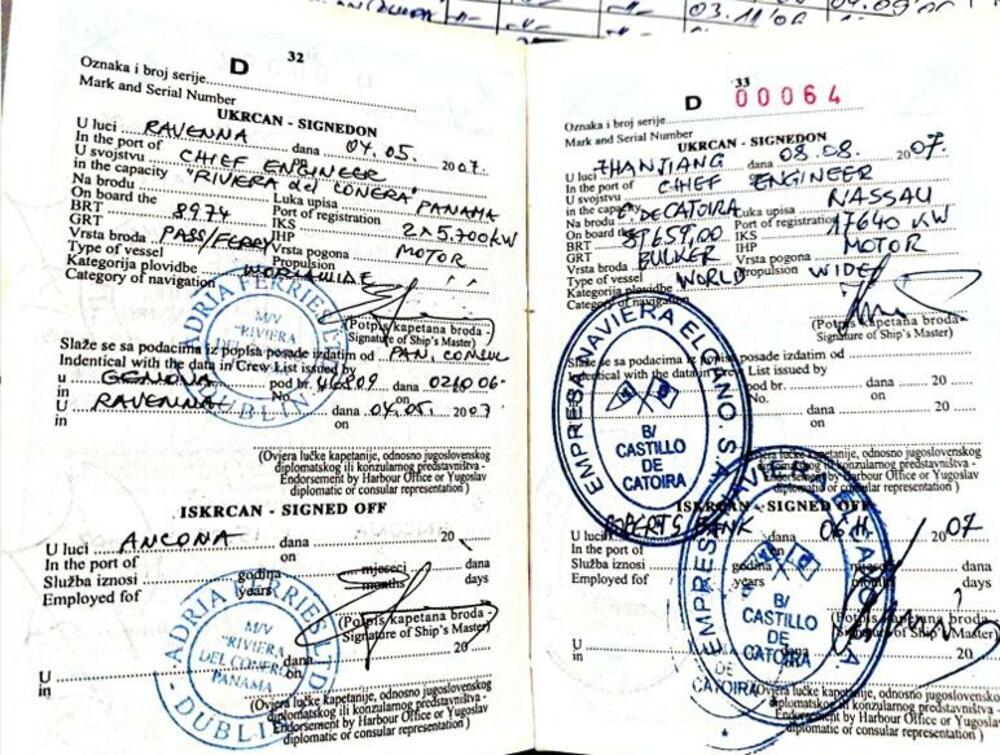 03.11'06
32
D
Oznaka i broj serije
Mark and Serial Number
UKRCAN - SIGNEDON
U luci RAVENNA dana 04.05. 2007.
In the port of on
U svojstvu CHIEF ENGINEER
in the capacity
Na brodu "RIVIERA del CONERO" Luka upisa PANAMA
On board the Port of registration
BRT 8974 IKS 2x5,700kW
GRT IHP
Vrsta broda PASS/FERRY Vrsta pogona MOTOR
Type of vessel Propulsion
Kategorija plovidbe WORLDWIDE
Category of navigation
(Potpis kapetana broda -
Signature of Ship's Master)
Slaže se sa podacima iz popisa posade izdatim od PAN. CONSUL
Indentical with the data in Crew List issued by
u GENOVA pod br. 46809 dana 02.10.06.
in No. on
U RAVENNA dana 04.05. 2007
in on
(Ovjera lučke kapetanije, odnosno jugoslovenskog
diplomatskog ili konzularnog predstavništva -
Endorsement by Harbour Office or Yugoslav
diplomatic or consular representation)
ISKRCAN - SIGNED OFF
U luci ANCONA dana 20
In the port of on
Služba iznosi godina mjeseci dana
Employed fof years months days
(Potpis kapetana broda -
Signature of Ship's Master)
U dana 20
in on
(Ovjera lučke kapetanije, odnosno jugoslovenskog
diplomatskog ili konzularnog predstavništva -
Endorsement by Harbour Office or Yugoslav
diplomatic or consular representation)
ADRIA FERRIES LTD
M/V
"RIVIERA
DEL CONERO"
DUBLIN
ADRIA FERRIES LTD
M/V
"RIVIERA
DEL CONERO"
PANAMA
- DUBLIN -
33
D 00064
Oznaka i broj serije
Mark and Serial Number
UKRCAN - SIGNEDON
U luci ZHANJIANG dana 08.08. 2007.
In the port of on
U svojstvu CHIEF ENGINEER
in the capacity
Na brodu C DE CATOIRA Luka upisa NASSAU
On board the Port of registration
BRT 87659,00 IKS 17640 KW
GRT IHP
Vrsta broda BULKER Vrsta pogona MOTOR
Type of vessel Propulsion
Kategorija plovidbe WORLD WIDE
Category of navigation
(Potpis kapetana broda
Signature of Ship's Master)
Slaže se sa podacima iz popisa posade izdatim od
Indentical with the data in Crew List issued by
pod br. dana 20
No. on
dana 20
on
(Ovjera lučke kapetanije, odnosno jugoslovenskog
diplomatskog ili konzularnog predstavništva -
Endorsement by Harbour Office or Yugoslav
diplomatic or consular representation)
ISKRCAN - SIGNED OFF
U luci ROBERTS BANK dana 06.11. 2007
In the port of
Služba iznosi godina mjeseci dana
Employed fof years months days
(Potpis kapetana broda
Signature of Ship's Master)
U 20
in
(Ovjera lučke kapetanije, odnosno jugoslovensko
diplomatskog ili konzularnog predstavništva -
Endorsement by Harbour Office or Yugoslav
diplomatic or consular representation)
EMPRESA NAVIERA ELCANO. S.A.
B/
CASTILLO
DE
CATOIRA
EMPRESA NAVIERA ELCANO. S.A.
B/
CASTILLO
DE
CATOIRA
DE
CATOIRA